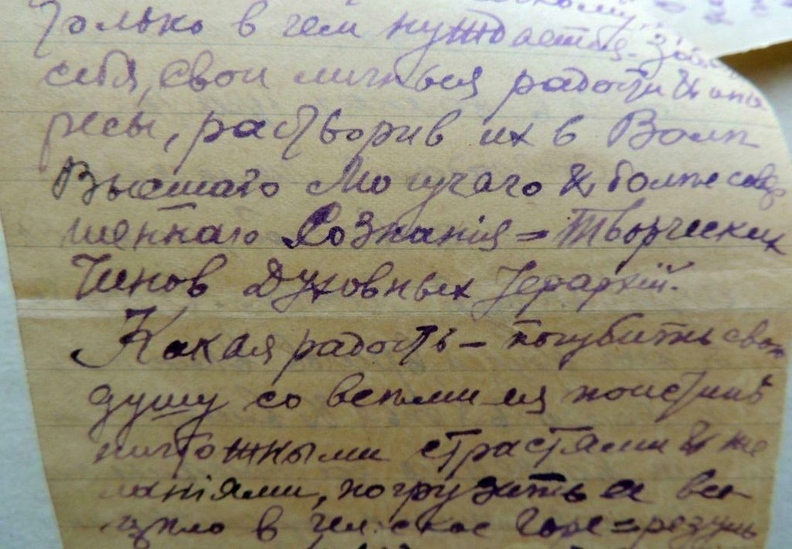 только в чем нуждается
себя, свои личныя радости и
ресы, растворив их в Воли
Высшаго Могучаго и болѣе совер
шеннаго Сознанія = Творческих
Чинов Духовных Іерархій.
Какая радость – погубить свою
душу со всѣми ея поистинѣ
ничтожными страстями и же
ланіями, погрузить ее все
цѣло в горе =